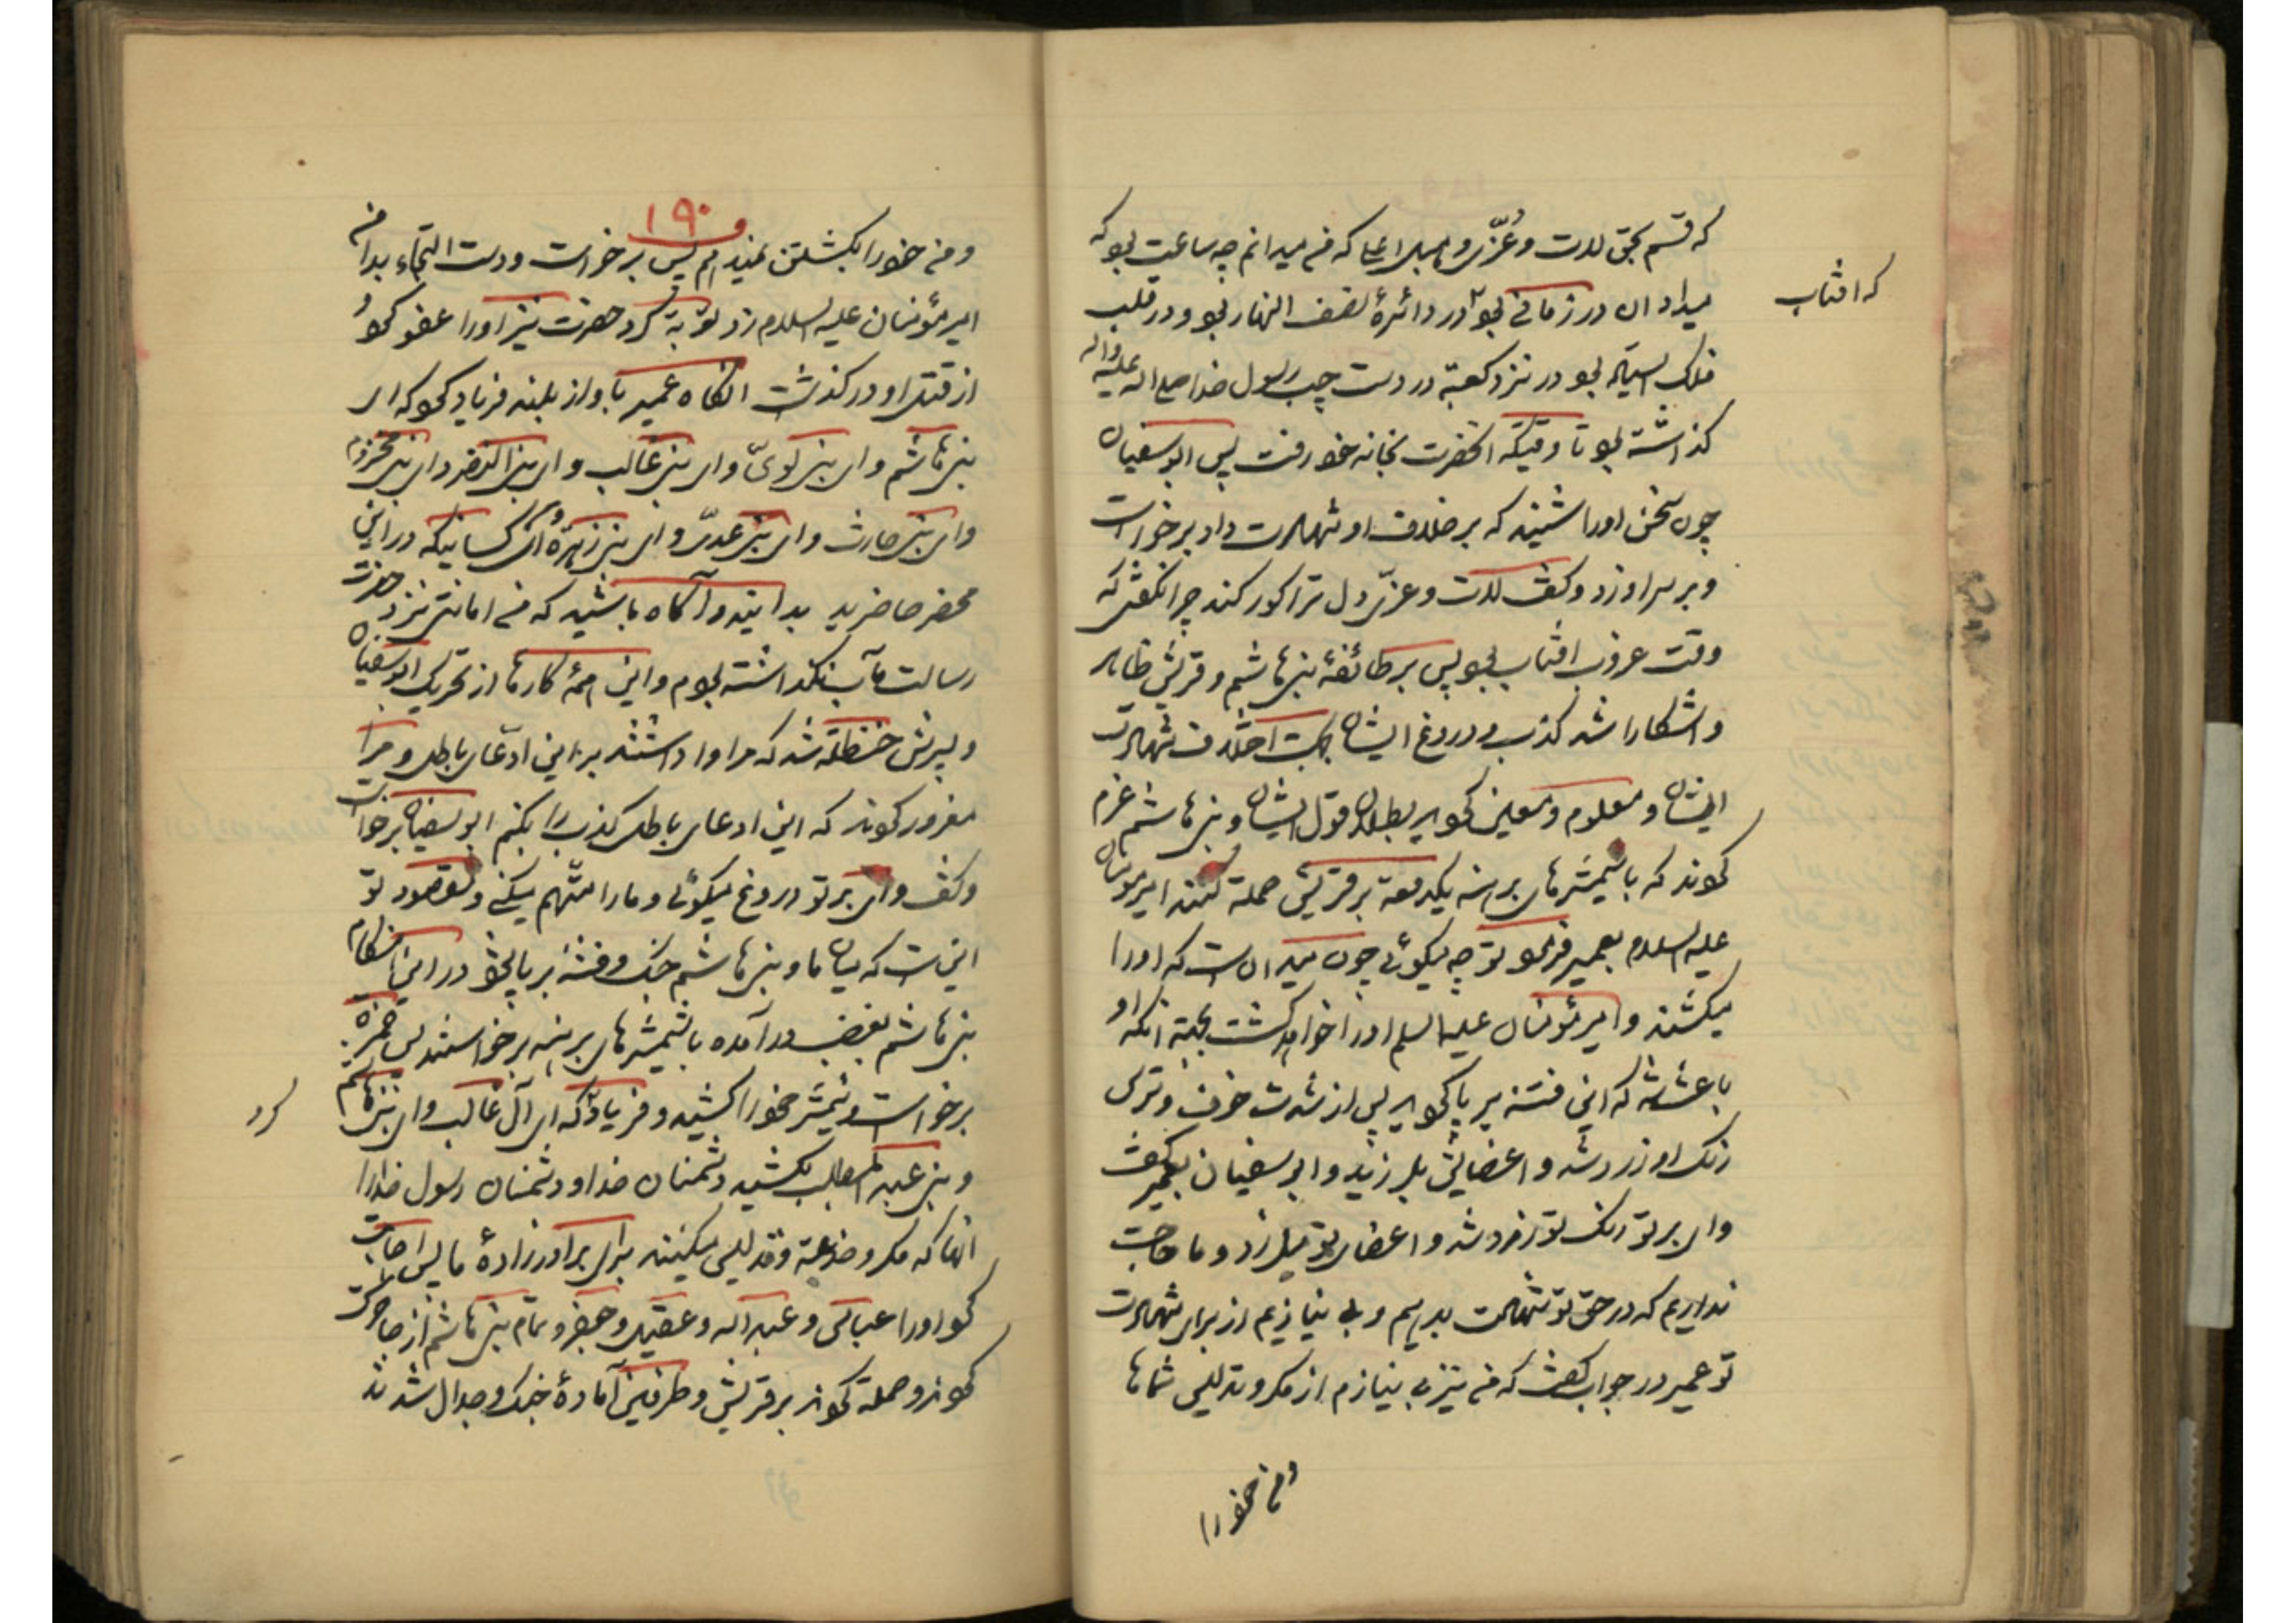 که قسم بحق لات و عُزّی و هبل اعلا که من میدانم چه ساعت بود که
که افتاب
میداد ان در زمانی بود در دائرهٔ نصف النهار بود و در قلب
فلک السماء بود در نزد کعبة در دست چپ رسول خدا صلی اله علیه واله
کذاشته بود تا وقتیکه انحضرت بخانه خود رفت پس ابو سفیان
چون سخن اورا شنید که بر خلاف او شهادت داد برخواست
و بر سر او زد و کفت لات و عزّی دل ترا کور کند چرا نکفتی که
وقت غروب افتاب بود پس بر طائفهٔ بنی هاشم و قریش ظاهر
و اشکارا شد کذب و دروغ ایشان بجهت اختلاف شهادت
ایشان و معلوم و معین کردید بطلان قول ایشان و بنی هاشم عزم
کردند که با شمشیرهای برهنه یکدفعة بر قریش حملة کنند امیر مؤمنان
علیه السلام بعمیر فرمود تو چه میکوئی چون میدانست که اورا
میکشند و امیر مؤمنان علیه السلم اورا خواهد کشت بجهة انکه او
باعث شد که این فتنه بر پا کردید پس از شدت خوف و ترس
رنک او زرد شد و اعضایش بلرزید و ابو سفیان بعمیر کفت
وای بر تو رنک تو زرد شد و اعضای تو میلرزد و ما حاجت
نداریم که در حق تو شهادت بدهیم و بی نیازیم از برای شهادت
تو عمیر در جواب کفت که من نیز بی نیازم از مکر و تدلیس شماها
و من خود را
۱۹۰
و من خود را بکشتن نمیدهم پس برخواست و دست التجاء بدامن
امیر مؤمنان علیه السلام زد توبة کرد حضرت نیز اورا عفو کرد و
از قتل او در کذشت انکاه عمیر باواز بلند فریاد کرد که ای
بنی هاشم و ای بنی لویّ و ای بنی غالب و ای بنی النضر و ای بنی مخزوم
و ای بنی حارث و ای بنی عدیّ و ای بنی زهرة و ای کسانیکه در این
محضر حاضرید بدانید و آکاه باشید که من امانتی نزد حضرت
رسالت مآب نکذاشته بودم و این همهٔ کارها از تحریک ابو سفیان
و پسرش حنظلة شد که مرا وا داشتند بر این ادّعای باطل و مرا
مغرور کردند که این ادعای باطل کذب را بکنم ابو سفیان برخواست
و کفت وای بر تو دروغ میکوئی و ما را متّهم میکنی و مقصود تو
اینست که میان ما و بنی هاشم جنک و فتنهٔ بر پا شود در این هنکام
بنی هاشم بغضب در آمده با شمشیرهای برهنه برخواستند پس حمزه
برخواست و شمشیر خود را کشید و فریاد که ای آل غالب و ای بنی هاشم
کرد
و بنی عبد المطلب بکشید دشمنان خدا و دشمنان رسول خدا را
انها که مکر و خدعة و تدلیس میکنند برای برادر زادهٔ ما پس اجابت
کرد اورا عباس و عبد اله و عقیل و جعفر و تمام بنی هاشم از جا حرکت
کردند و حملة کردند بر قریش و طرفین آمادهٔ جنک و جدال شدند